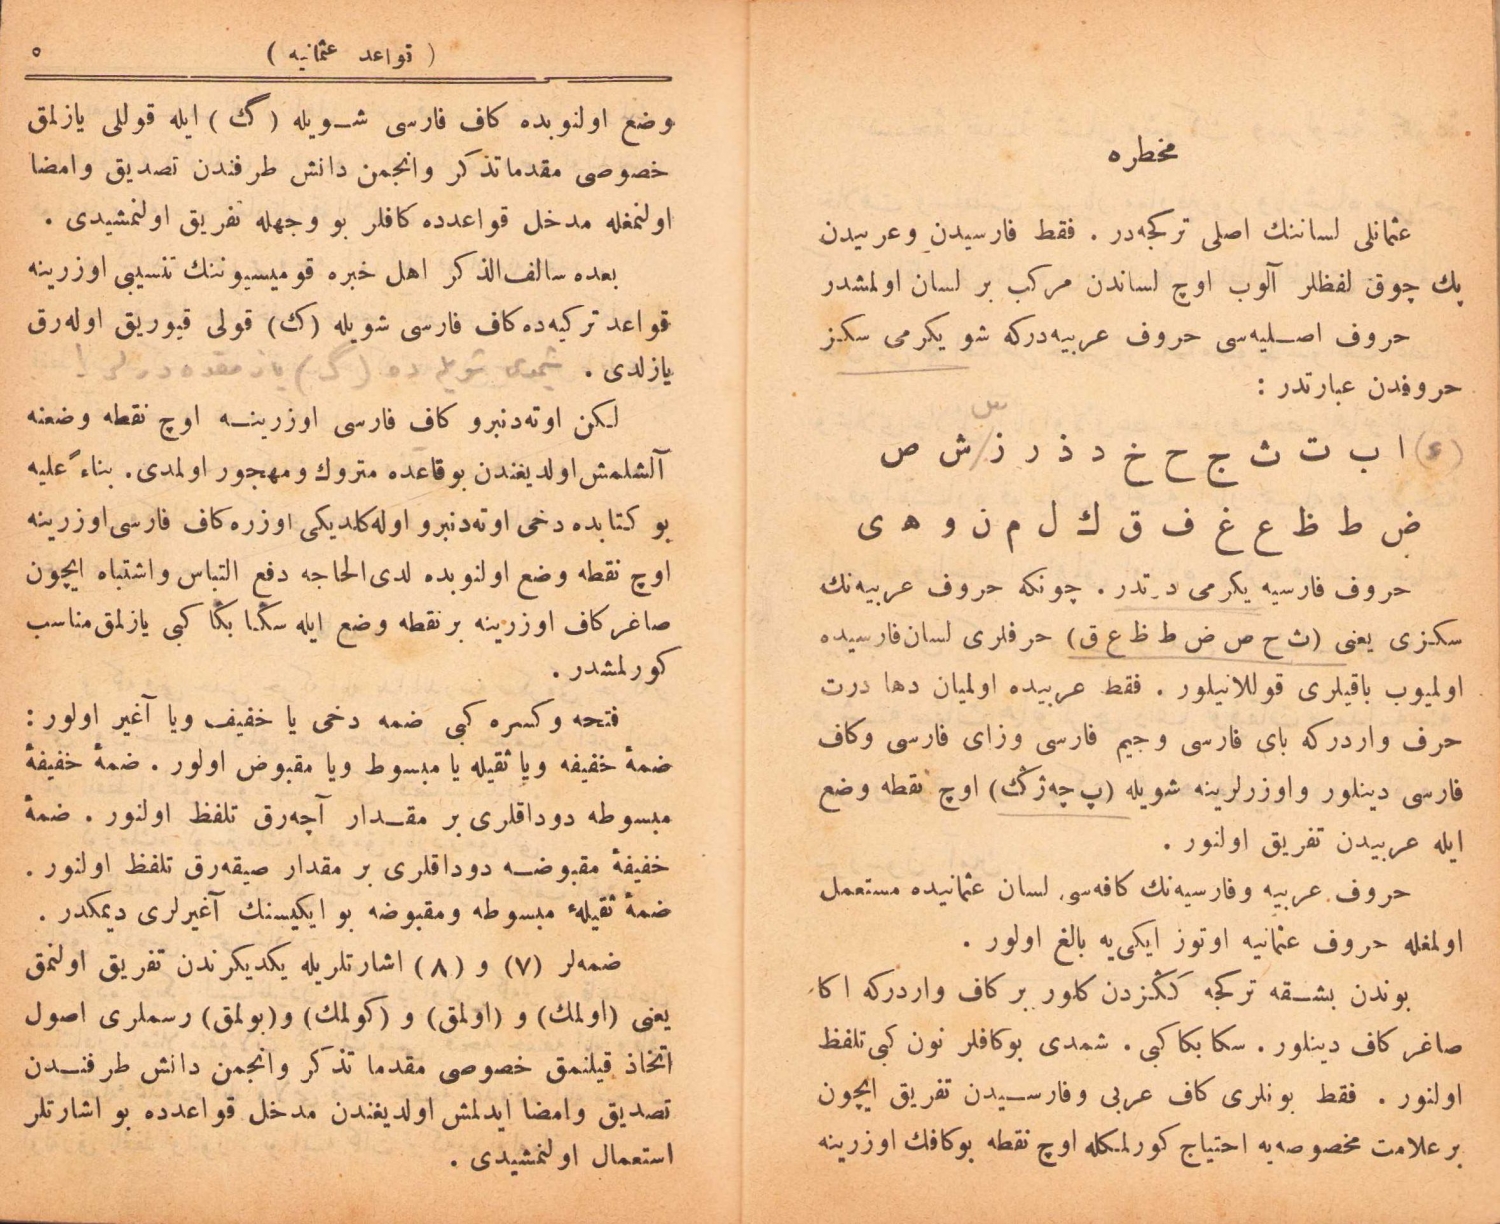 مخطره
عثمانلی لساننك اصلی تركجه‌در . فقط فارسیدن وعربیدن
پك چوق لفظلر آلوب اوچ لساندن مركب بر لسان اولمشدر
حروف اصلیه‌سی حروف عربیه‌دركه شو یكرمی سكز
حروفدن عبارتدر :
(ء) ا ب ت ث ج ح خ د ذ ر ز / ش ص
س
ض ط ظ ع غ ف ق ك ل م ن و ه ی
حروف فارسیه یكرمی درتدر . چونكه حروف عربیه‌نك
سكزی یعنی (ث ح ص ض ط ظ ع ق) حرفلری لسان فارسیده
اولمیوب باقیلری قوللانیلور . فقط عربیده اولمیان دها درت
حرف واردركه بای فارسی وجیم فارسی وزای فارسی وكاف
فارسی دینلور واوزرلرینه شویله (پ چه ژ ڭ) اوچ نقطه وضع
ایله عربیدن تفریق اولنور .
حروف عربیه وفارسیه‌نك كافه‌سی لسان عثمانیده مستعمل
اولمغله حروف عثمانیه اوتوز ایكی‌یه بالغ اولور .
بوندن بشقه تركجه كڭزدن كلور بر كاف واردركه اكا
صاغر كاف دینلور . سكا بكا كبی . شمدی بوكافلر نون كبی تلفظ
اولنور . فقط بونلری كاف عربی وفارسیدن تفریق ایچون
بر علامت مخصوصه‌یه احتیاج كورلمكله اوچ نقطه بوكافك اوزرینه
( قواعد عثمانیه )
٥
وضع اولنوبده كاف فارسی شویله (گ) ایله قوللی یازلمق
خصوصی مقدما تذكر وانجمن دانش طرفندن تصدیق وامضا
اولنمغله مدخل قواعدده كافلر بو وجهله تفریق اولنمشیدی .
بعده سالف‌الذكر اهل خبره قومیسیوننك تنسیبی اوزرینه
قواعد تركیه‌ده كاف فارسی شویله (ك) قولی قیوریق اوله‌رق
یازلدی . شمدی شویله ده (گ) یازمقده درلر !
لكن اوته‌دنبرو كاف فارسی اوزرینه اوچ نقطه وضعنه
آلشلمش اولدیغندن بوقاعده متروك ومهجور اولمدی. بناءً علیه
بو كتابده دخی اوته‌دنبرو اوله‌كلدیكی اوزره كاف فارسی اوزرینه
اوچ نقطه وضع اولنوبده لدی‌الحاجه دفع التباس واشتباه ایچون
صاغر كاف اوزرینه بر نقطه وضع ایله سكا بكا كبی یازلمق مناسب
كورلمشدر .
فتحه وكسره كبی ضمه دخی یا خفیف ویا آغیر اولور :
ضمهٔ خفیفه ویا ثقیله یا مبسوط ویا مقبوض اولور . ضمهٔ خفیفهٔ
مبسوطه دوداقلری بر مقدار آچه‌رق تلفظ اولنور . ضمهٔ
خفیفهٔ مقبوضه دوداقلری بر مقدار صیقه‌رق تلفظ اولنور .
ضمهٔ ثقیلهٔ مبسوطه ومقبوضه بو ایكیسنك آغیرلری دیمكدر .
ضمه‌لر (٧) و (٨) اشارتلریله یكدیكرندن تفریق اولنمق
یعنی (اولمك) و (اولمق) و (كولمك) و(بولمق) رسملری اصول
اتخاذ قیلنمق خصوصی مقدما تذكر وانجمن دانش طرفندن
تصدیق وامضا ایدلمش اولدیغندن مدخل قواعدده بو اشارتلر
استعمال اولنمشیدی .